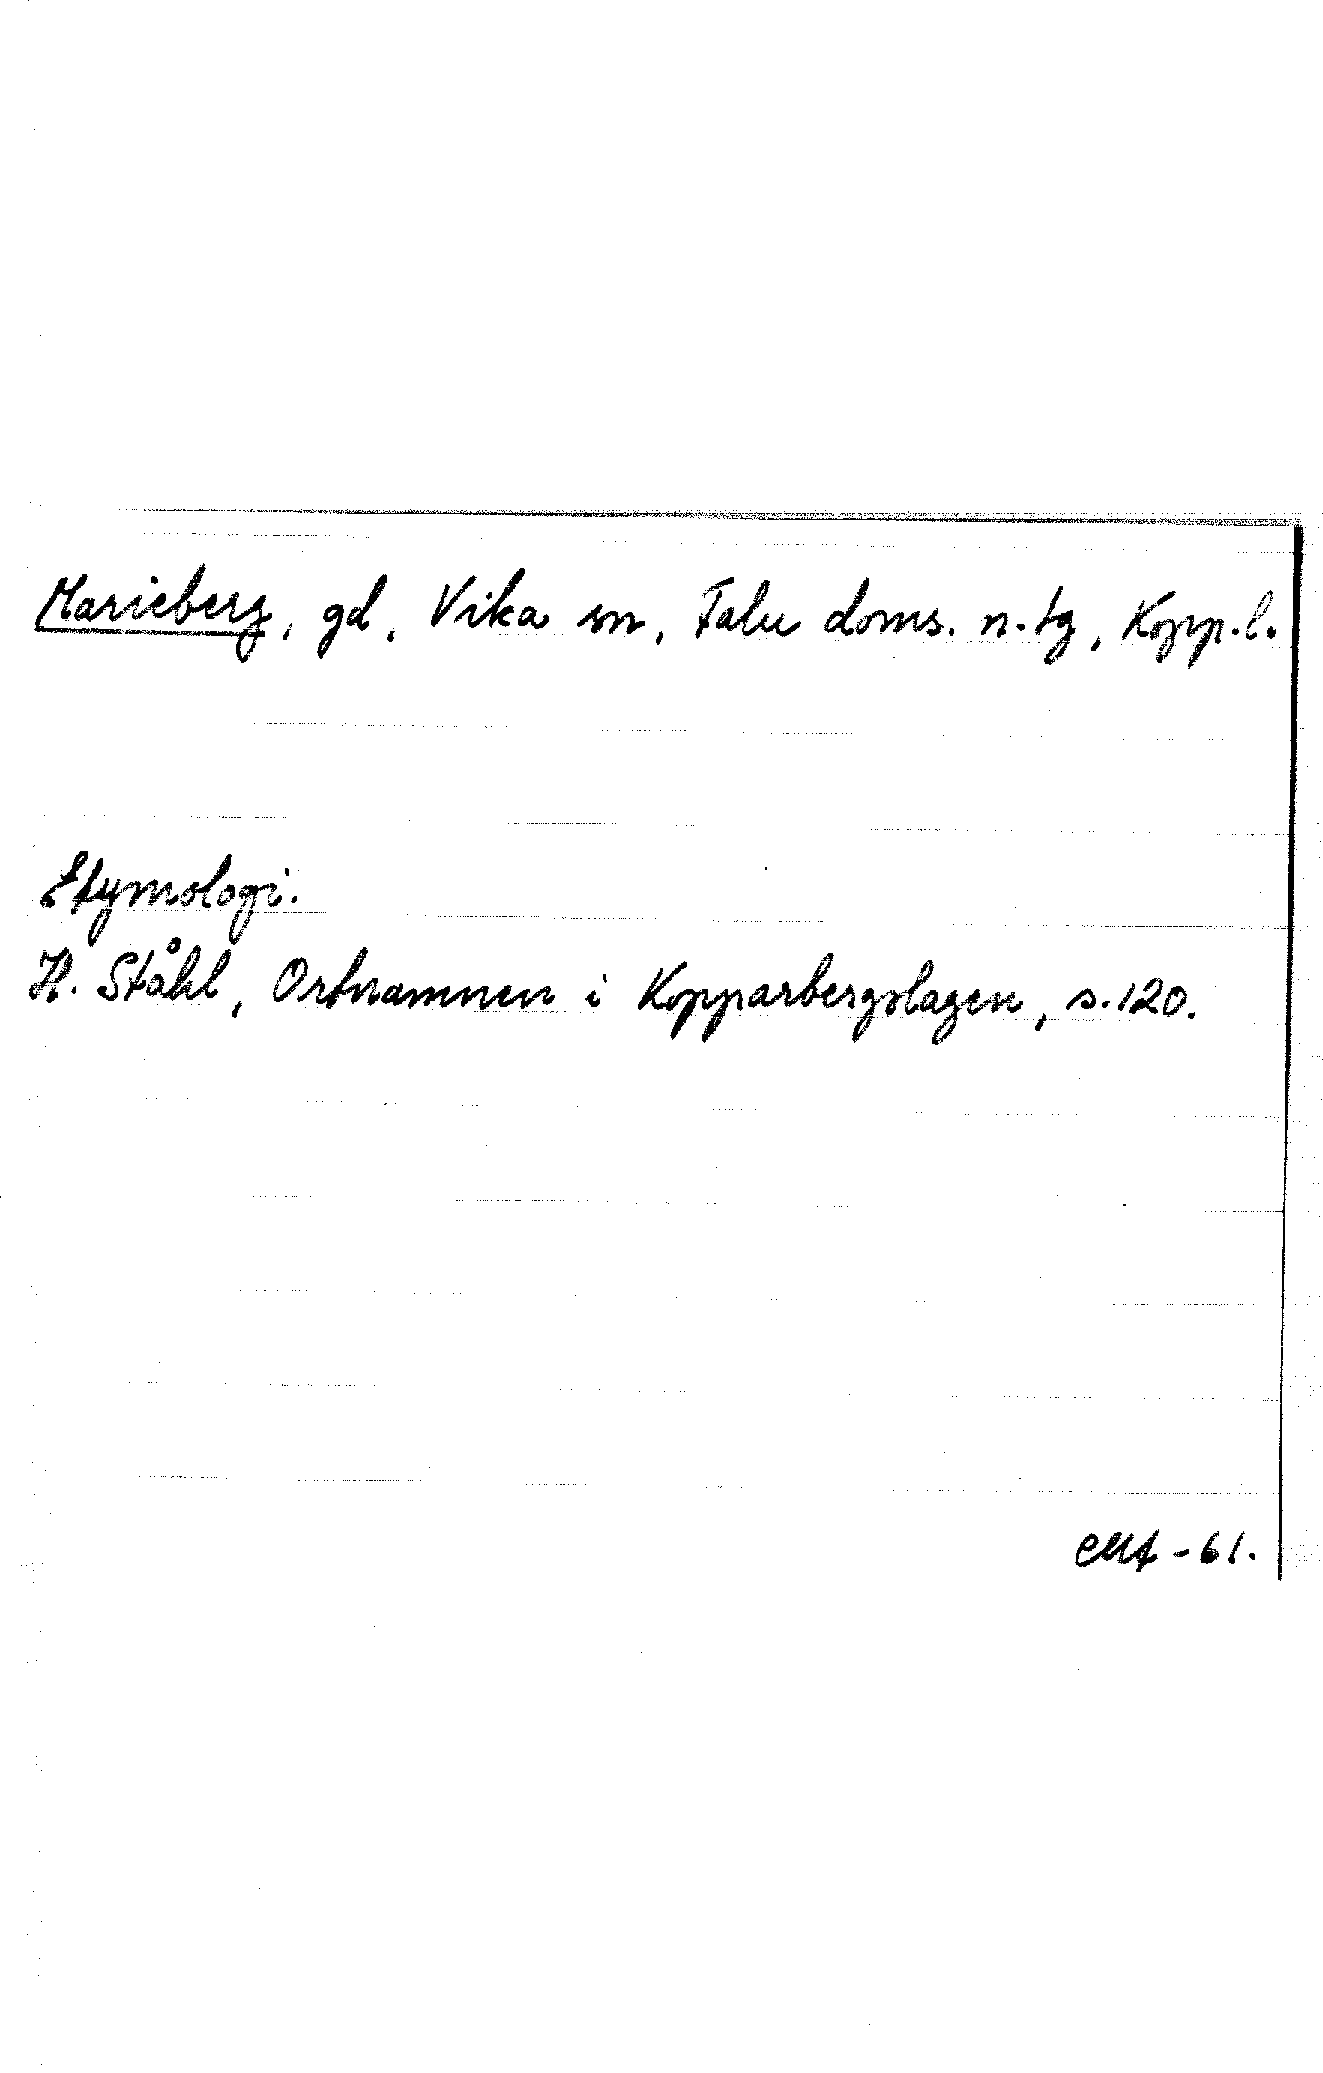 Marieberg, gd, Vika sn, Falu doms. n. tg, Kopp.l.
Etymologi.
H. Ståhl, Ortnamnen i Kopparbergslagen, s.120.
-61.